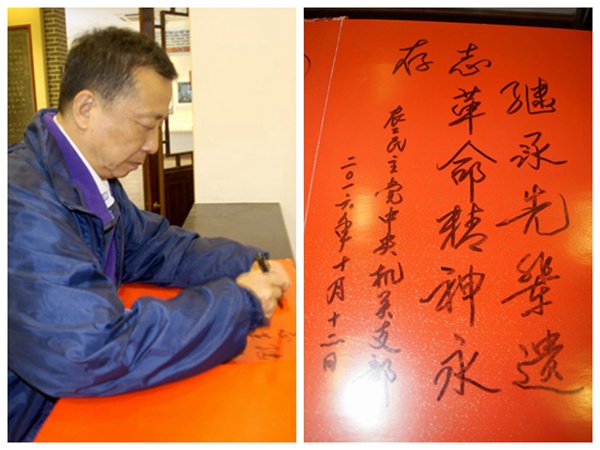 继承先辈遗
志革命精神永
存
农工民主党中央机关支部
二〇一六年十月十二日